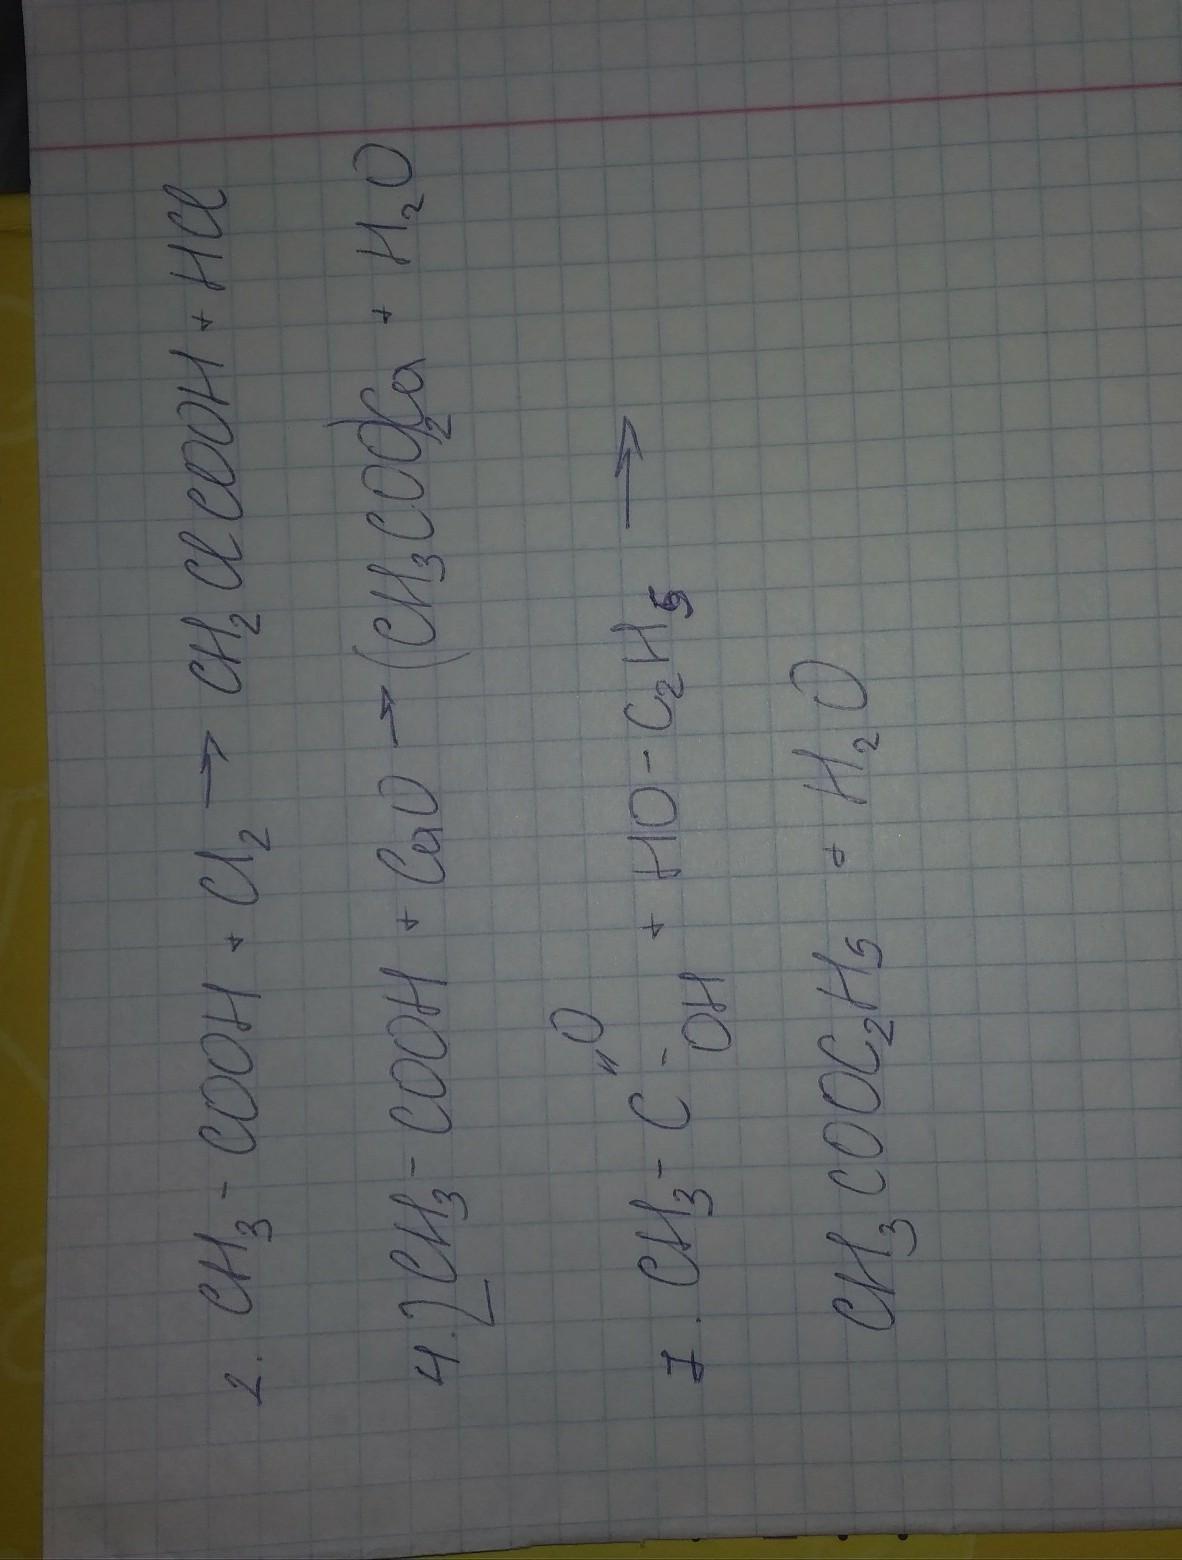 2. CH₃ - COOH + Cl₂ → CH₂ClCOOH + HCl
4. 2CH₃ - COOH + CaO → (CH₃COO)₂Ca + H₂O
O
1. CH₃ - C - OH + HO - C₂H₅ →
CH₃COOC₂H₅ + H₂O